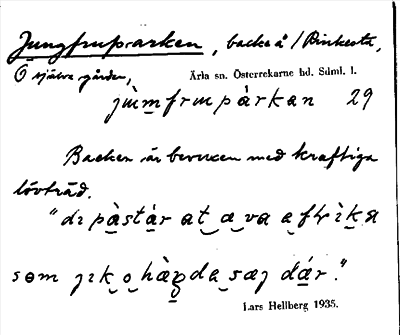 Jungfruparken, backe å /Binkesta,
Ö själva gården, Ärla sn. Österrekarne hd. Sdml. l.
jùm̲frup à̲rkan 29
Backen är bevuxen med kraftiga
lövträd.
"dı pà̲stá̲r at‿æ̲‿va e̲ fʀì̲ka
som ȷık‿o̲‿hà da‿sæȷ dá̲r."
Lars Hellberg 1935.